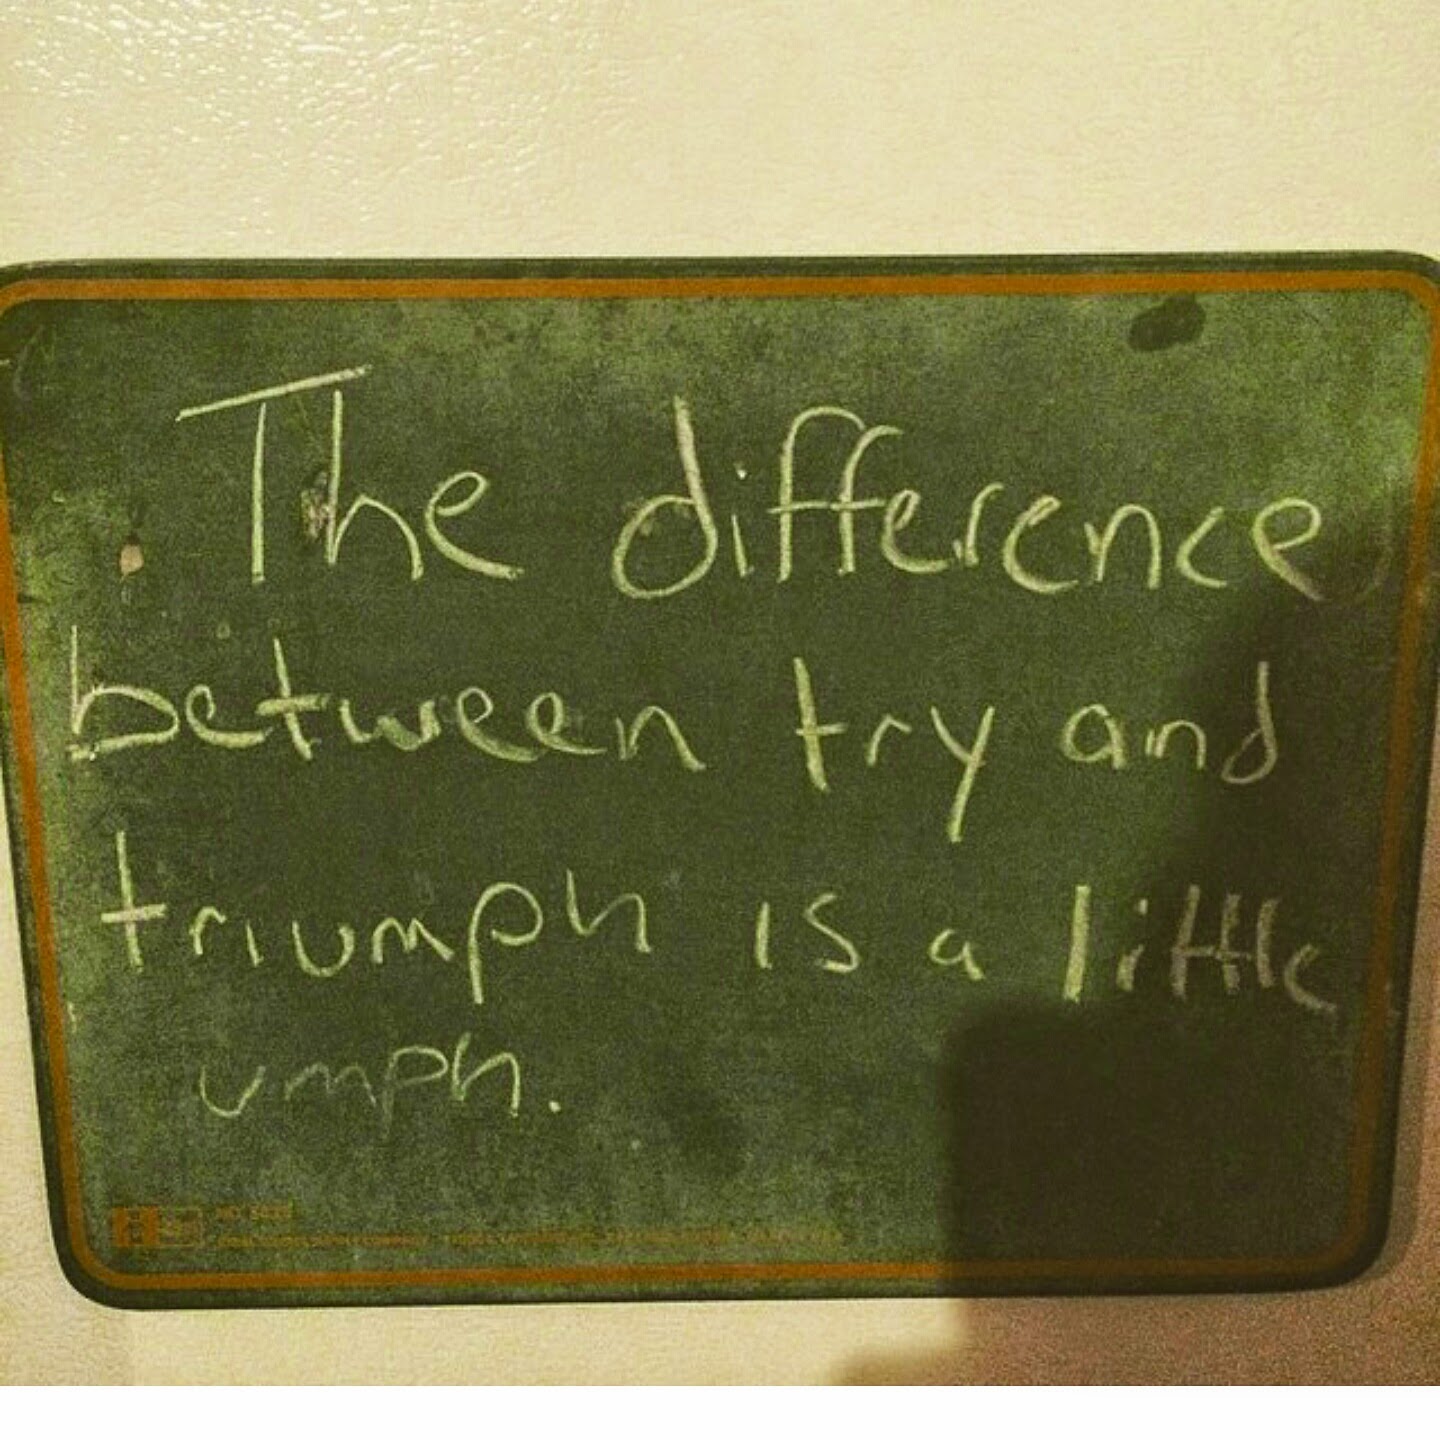 The difference
between try and
triumph is a little
umph.